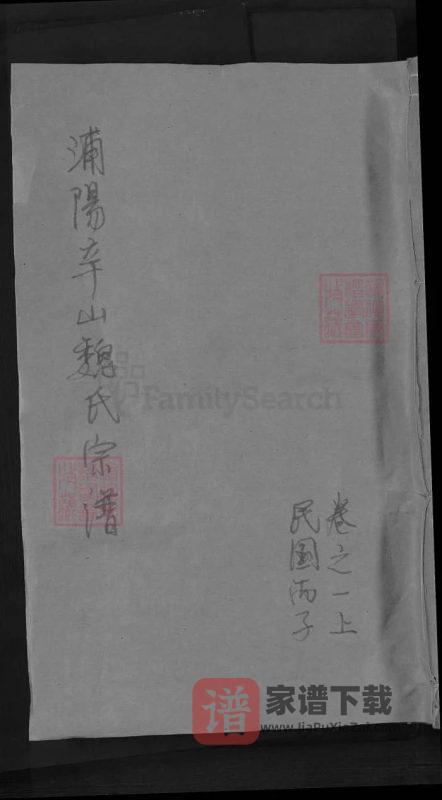 浦陽辛山魏氏宗譜
卷之一上
民國丙子
FamilySearch
谱
家谱下载